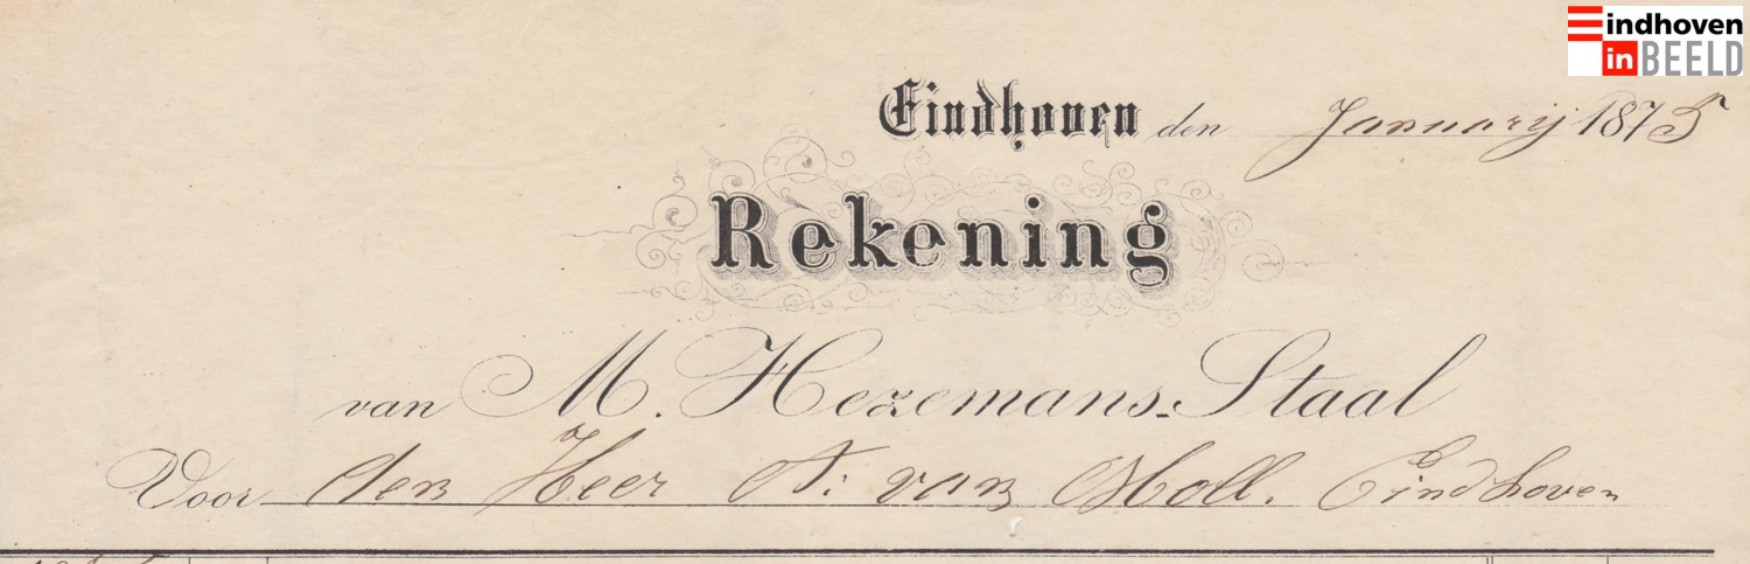 Eindhoven
in BEELD
Eindhoven den Januarij 1875
Rekening
van M. Hezemans-Staal
Voor den Heer A: van Moll. Eindhoven